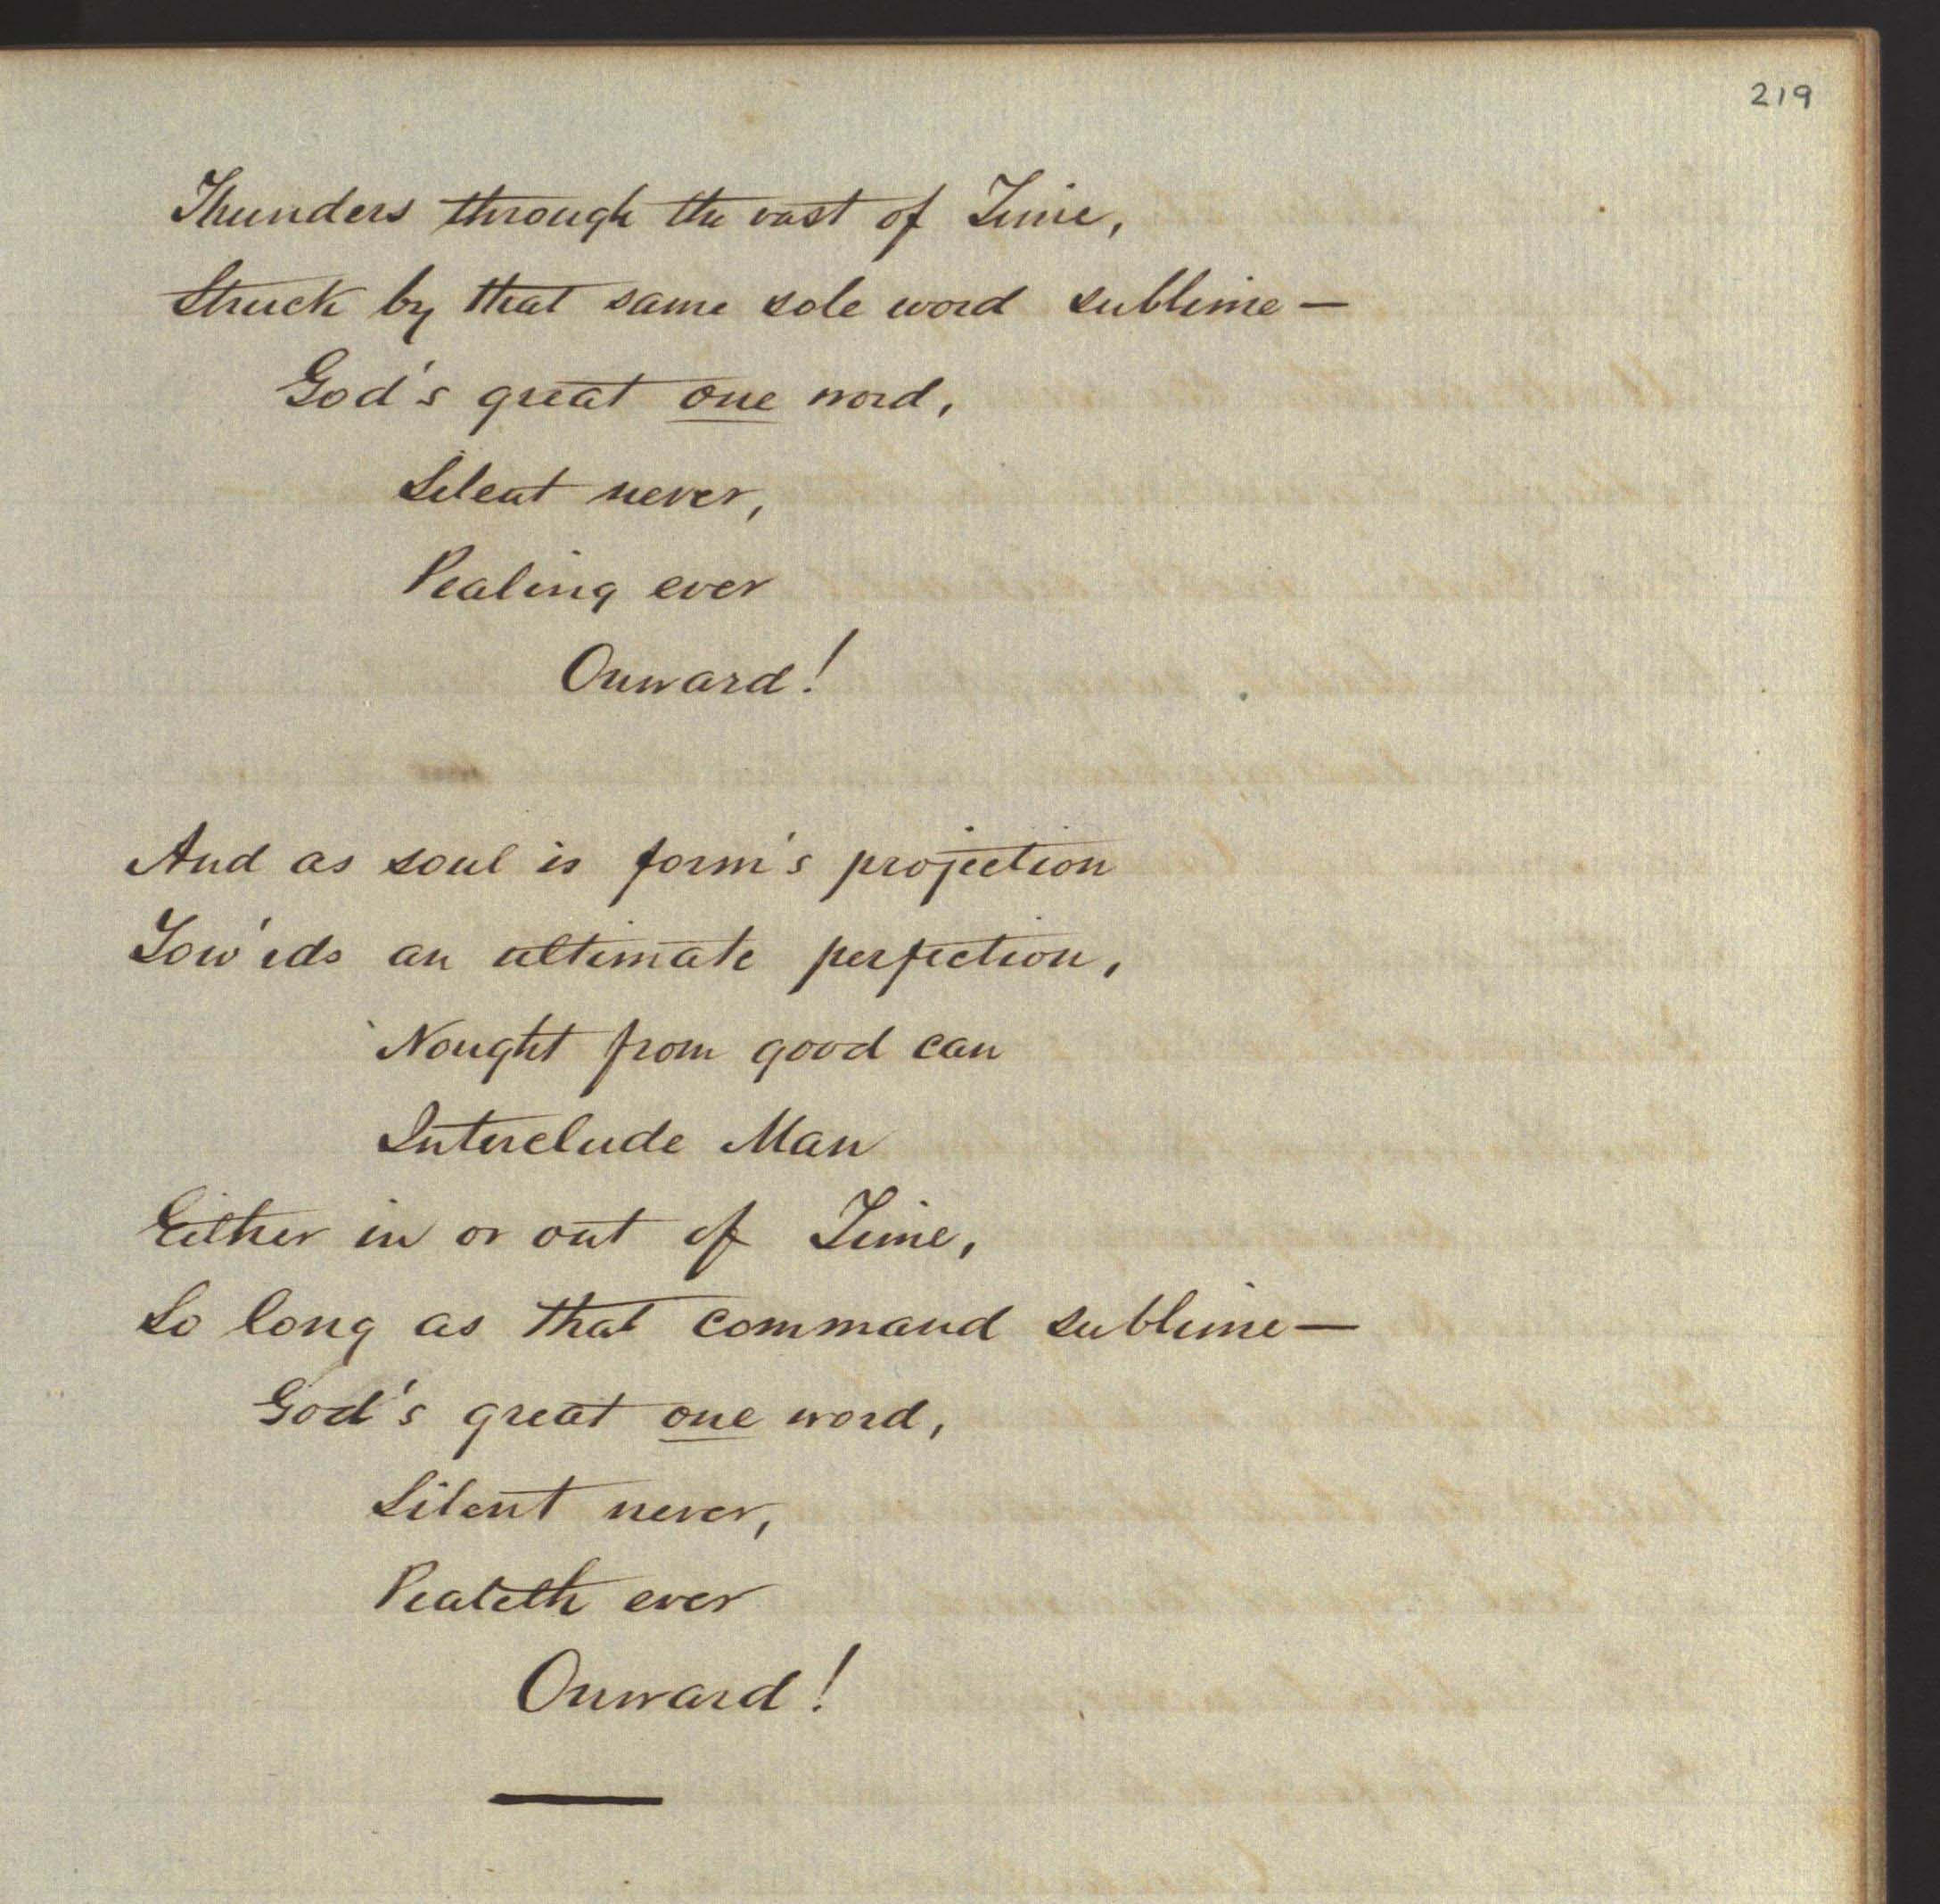 219
Thunders through the vast of Time,
Struck by that same sole word sublime —
God's great one word,
Silent never,
Pealing ever
Onward!
And as soul is form's projection
Tow'rds an ultimate perfection,
Nought from good can
Interclude Man
Either in or out of Time,
So long as that command sublime —
God's great one word,
Silent never,
Pealeth ever
Onward!